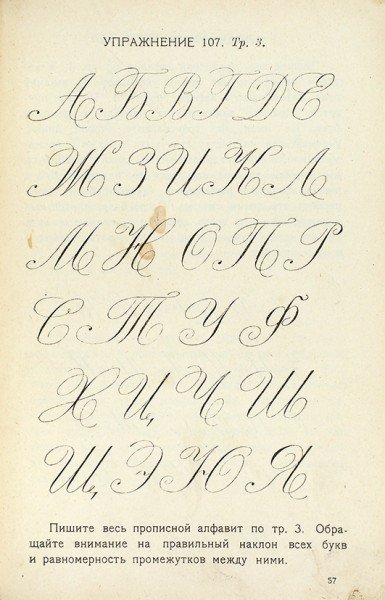 УПРАЖНЕНИЕ 107. Тр. 3.
А Б В Г Д Е
Ж З И К Л
М Н О П Р
С Т У Ф
Х Ц Ч Ш
Щ Э Ю Я
Пишите весь прописной алфавит по тр. 3. Обра-
щайте внимание на правильный наклон всех букв
и равномерность промежутков между ними.
57